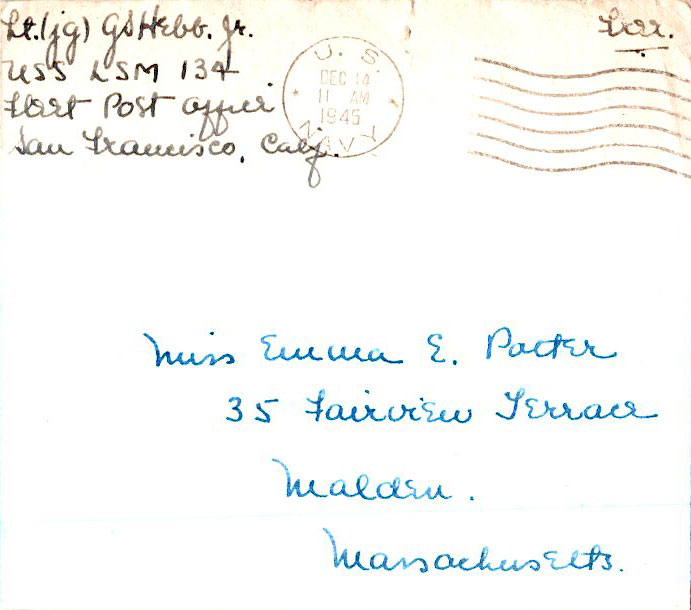 Lt.(jg) GSHebb. Jr.
USS LSM 134
Fleet Post Office
San Francisco, Calif.
Free.
U. S.
DEC 14
11 AM
1945
NAVY
Miss Emma E. Potter
35 Fairview Terrace
Malden.
Massachusetts.